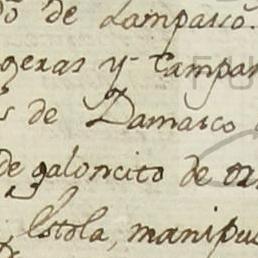 de Damasco.
geras y Campan
s de Damasco
de galoncito de
Estola, manipu